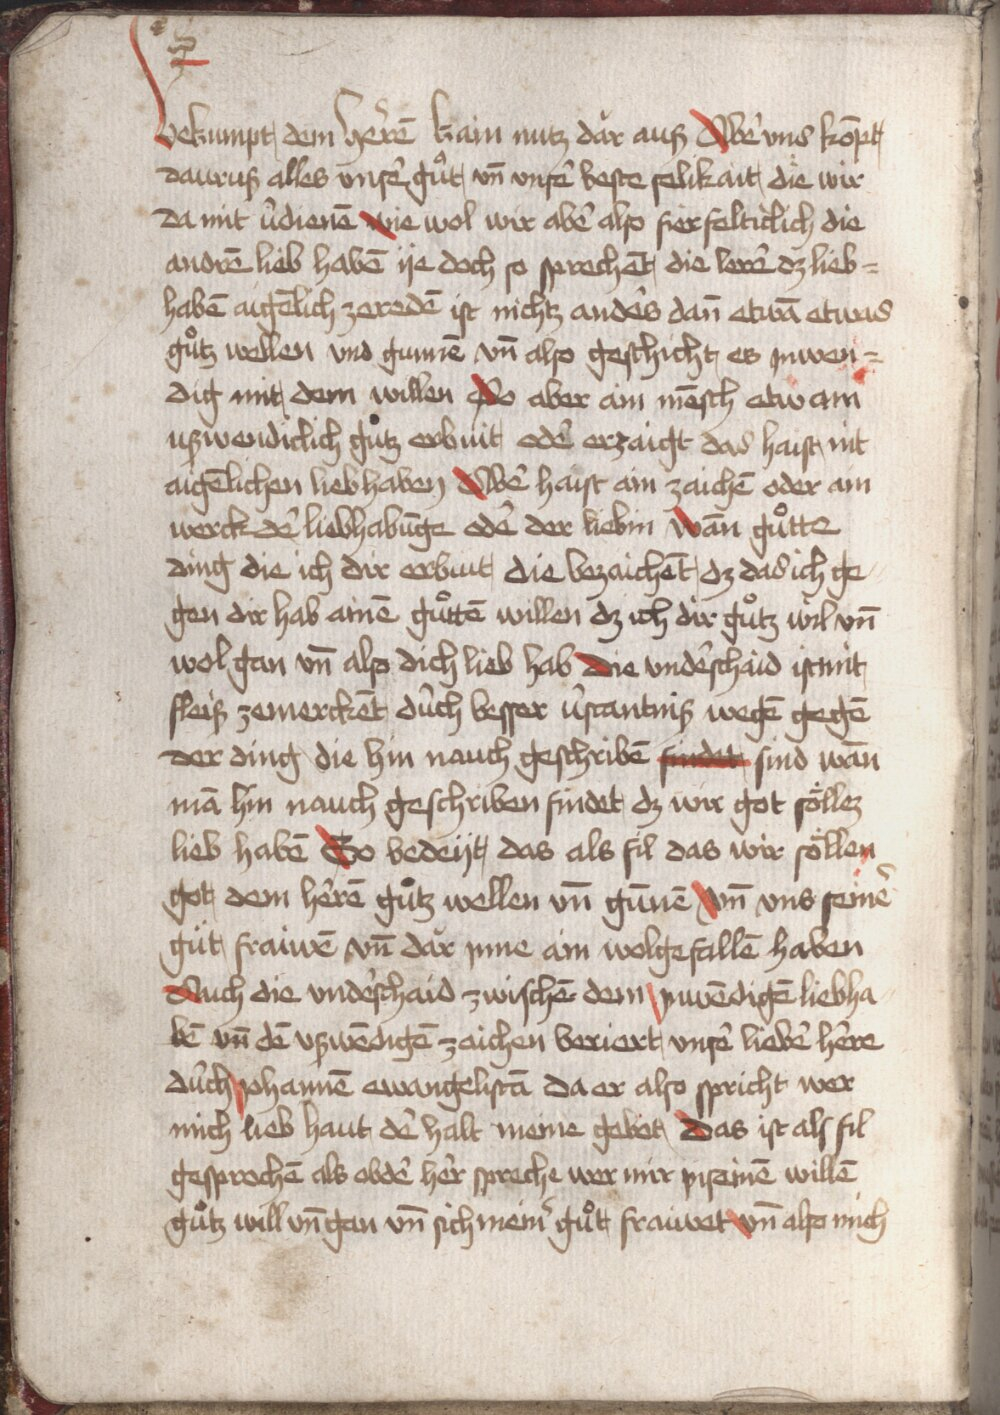 bekumpt dem herrē kain nutz dår auß Abē vns kōpt
dauruß alles vnsē gůt vn̄ vnsē beste selikait die wir
da mit v̄dienē wie wol wir abē also fierfelticlich die
andrē lieb habē ije doch so sprechēt die lerē dz lieb=
habē aigēlich zeredē ist nichtz andēs dan̄ etwā etwas
gůtz wellen vnd gunnē vn̄ also geschicht es inwen=
dig mit dem willen So aber ain mēsch etwam
ußwendiclich gůtz erbuit odē erzaigt das haist nit
aigēlichen liebhaben Abē haist ain zaichē oder ain
werck dē liebhabūge odē der liebin wān gůtte
ding die ich dir erbiut die bezaichēt dz das ich ge
gen dir hab ainē gůttē willen dz ich dir gůtz wil vn̄
wol gan vn̄ also dich lieb hab Die vndēschaid ist mit
fleiß zemerckēt dūch besser v̄stantniß wegē gegē
der ding die hin nauch geschribē findet sind wān
mā hin nauch geschriben findet dz wir got söllez
lieb habē So bedeijt das als fil das wir söllen
got dem hērē gůtz wellen vn̄ gūnē vn̄ vns seinē
gůt fraiwē vn̄ dår inne ain wolgefallē haben
Auch die vndēschaid zwischē dem inwēdigē liebha
bē vn̄ dē vßwēdigē zaichen beriert vnsē liebē hēre
dūch johannē ewangelistā da er also spricht wer
mich lieb haut dē halt meine gebot Das ist als fil
gesprochē als obdē hēr spreche wer mir in seinē willē
gůtz will vn̄ gan vn̄ sich meinē gůt fraiwet vn̄ also mich